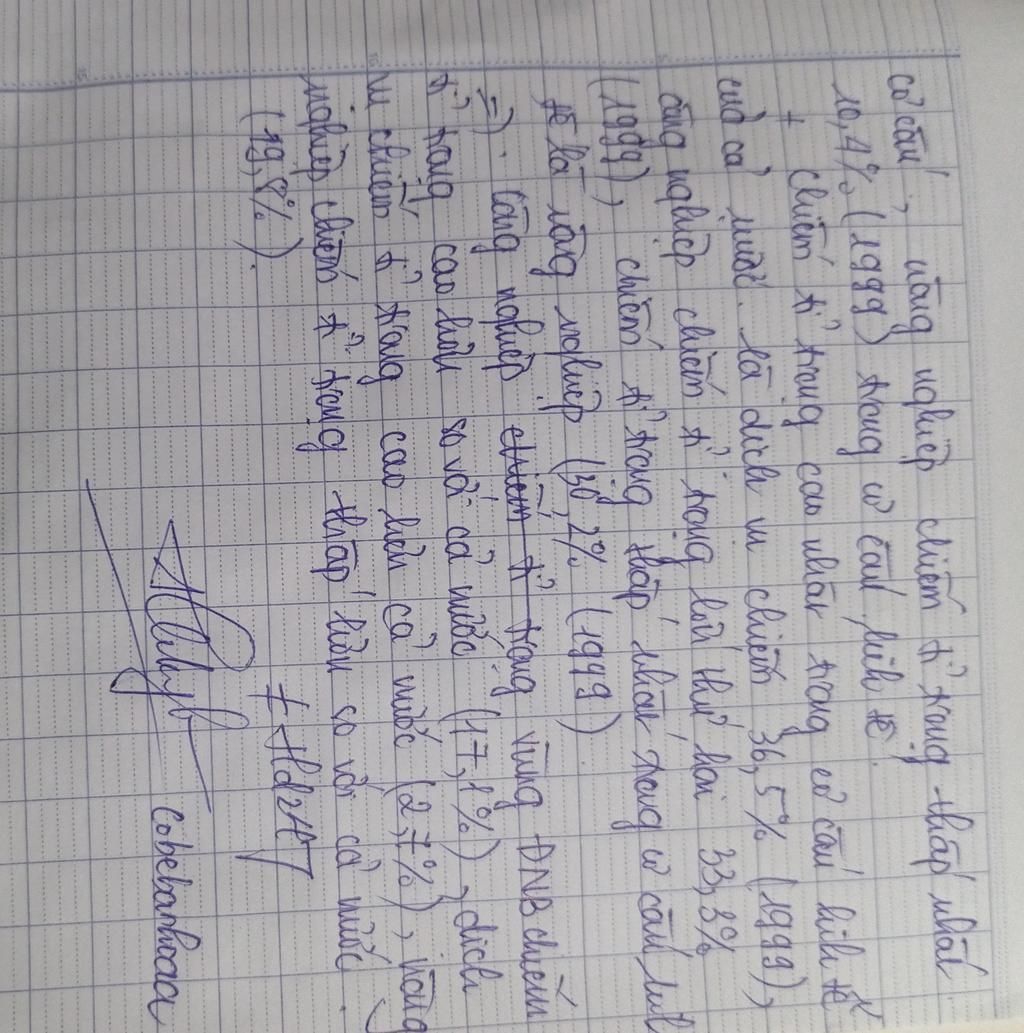 cơ cấu, nông nghiệp chiếm tỉ trọng thấp nhất
10,4% (1999) trong cơ cấu kinh tế.
+ chiếm tỉ trọng cao nhất trong cơ cấu kinh tế
của cả nước là dịch vụ chiếm 36,5% (1999),
công nghiệp chiếm tỉ trọng lớn thứ hai 33,3%
(1999), chiếm tỉ trọng thấp nhất trong cơ cấu kinh
tế là nông nghiệp (30,2% (1999).
=) . Công nghiệp chiếm tỉ trọng vùng ĐNB chiếm
tỉ trọng cao hơn so với cả nước (17,1%), dịch
vụ chiếm tỉ trọng cao hơn cả nước (2,7%), nông
nghiệp chiếm tỉ trọng thấp hơn so với cả nước
(19,8%).
cobebanhoaa